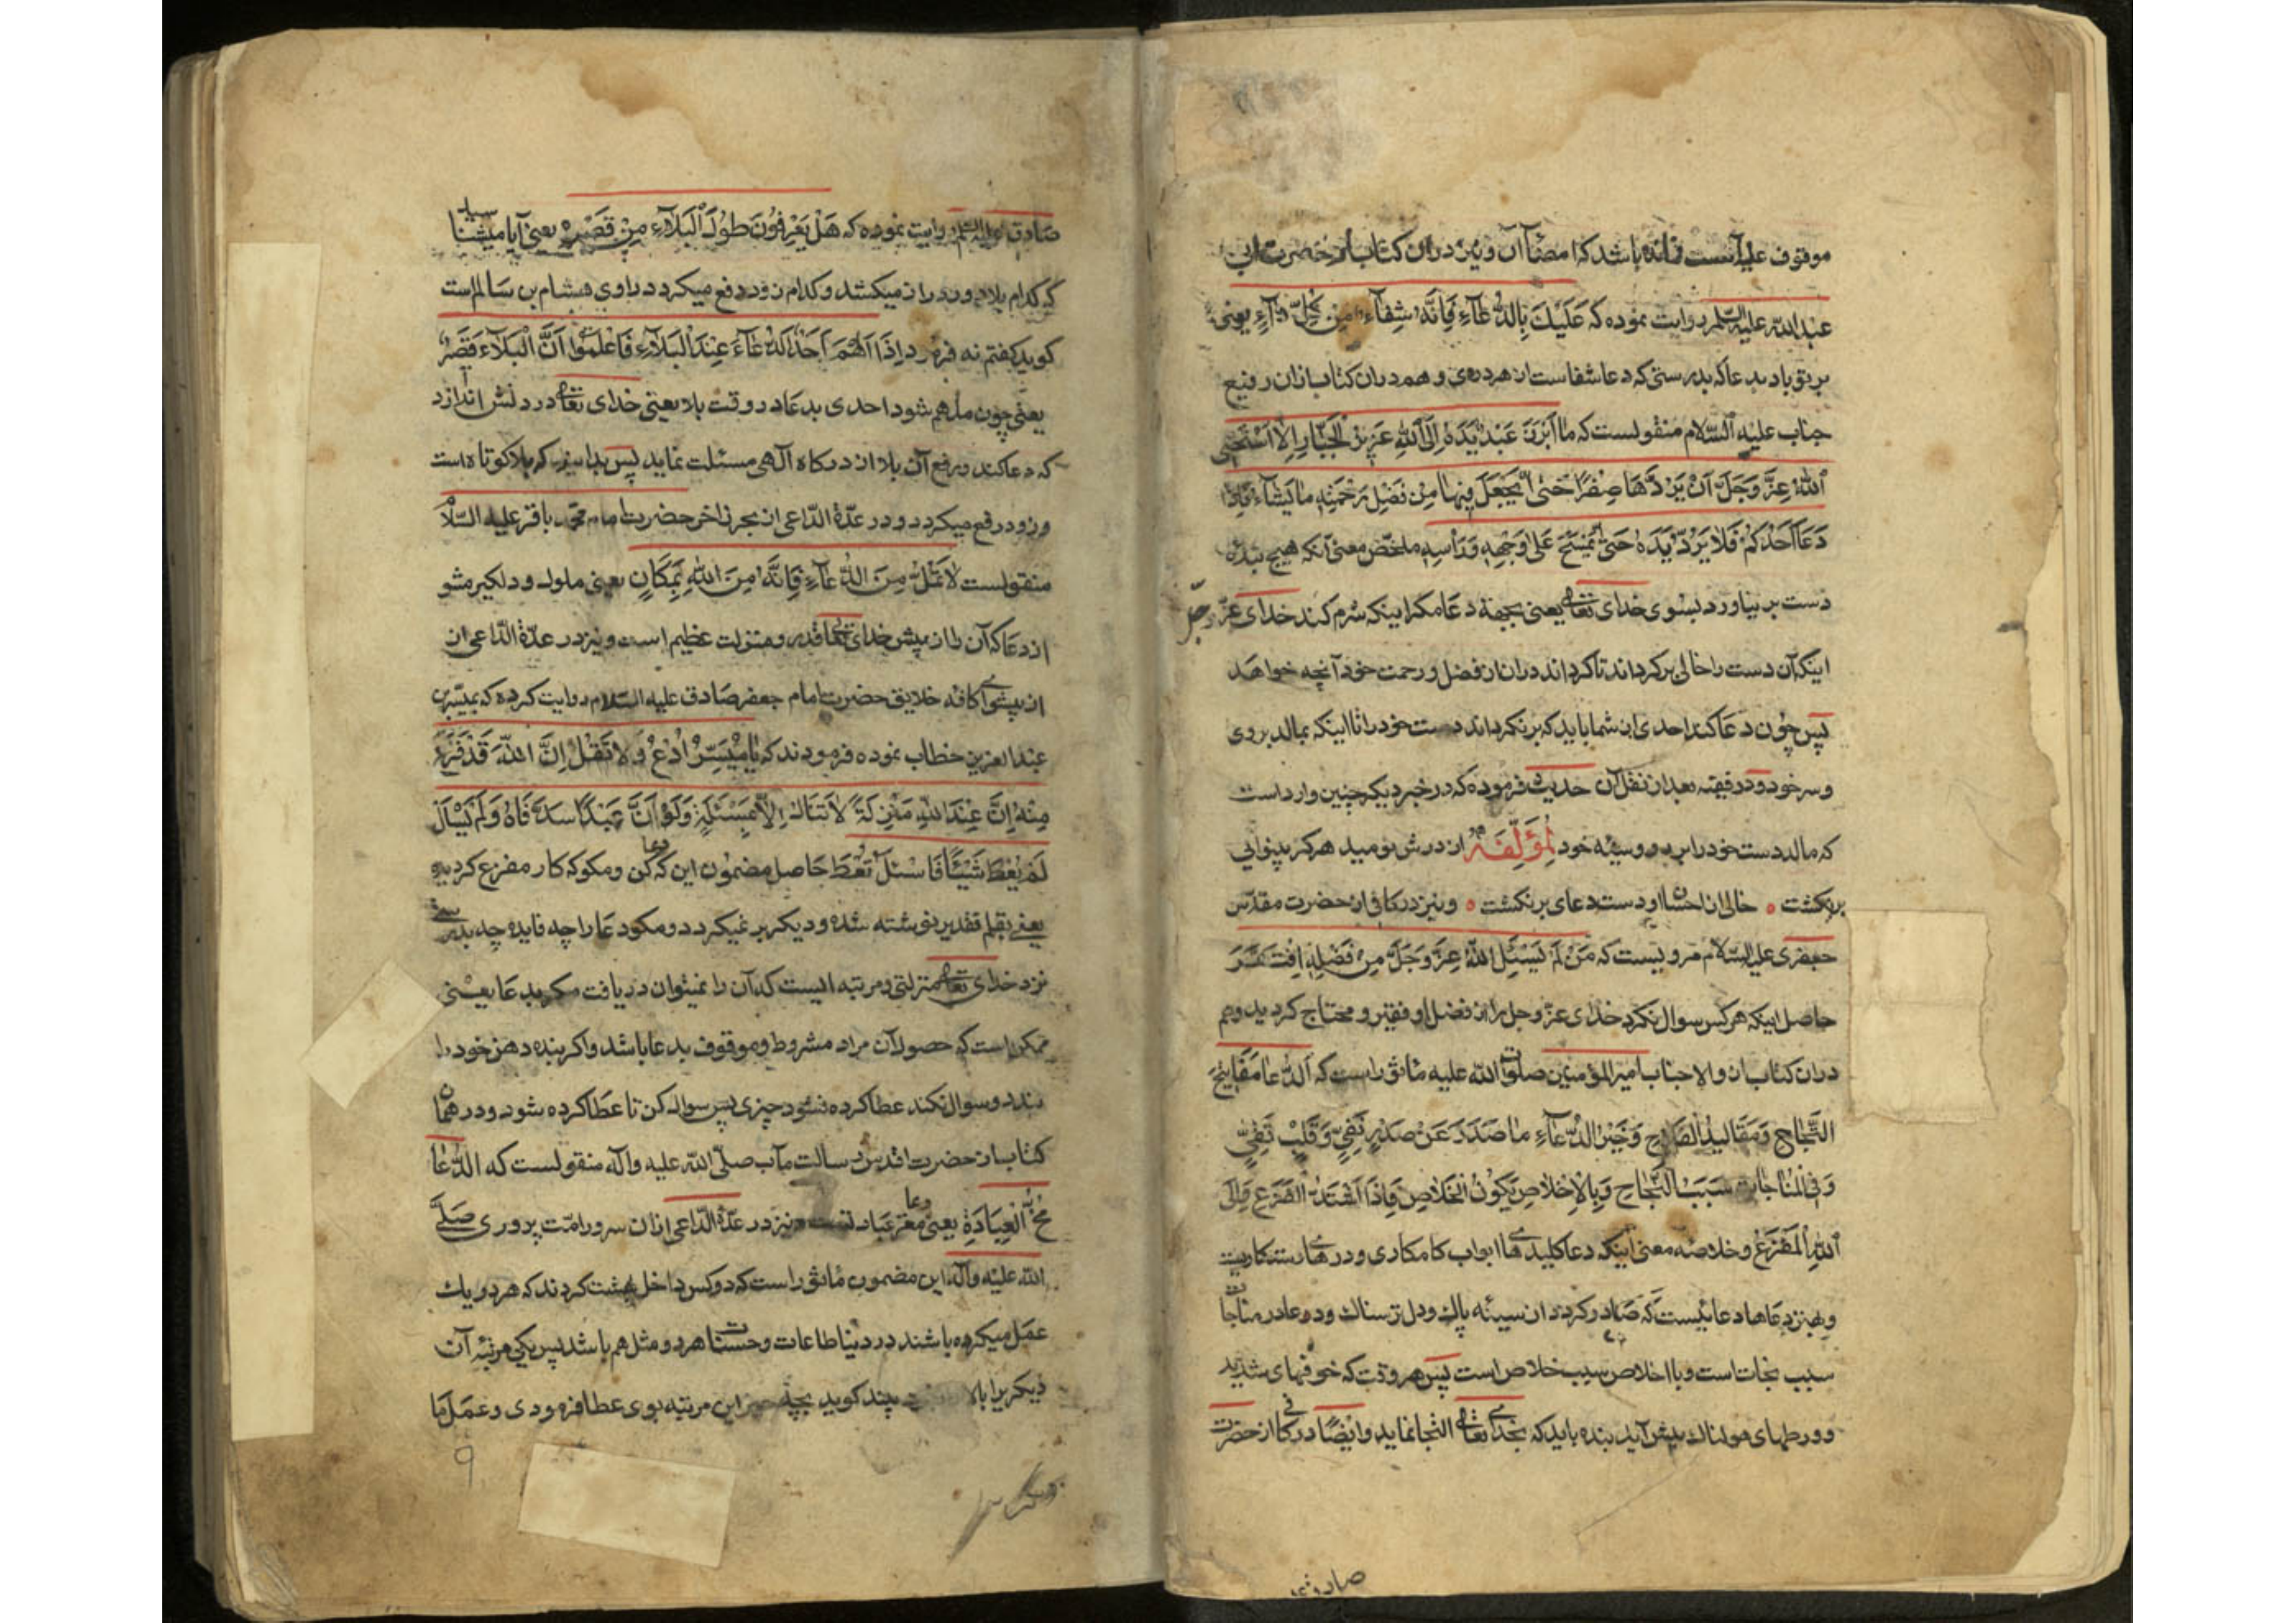 موقوف علیه آنست نمانده باشد که امضاآن و نیز دران کتاب از حضرت ابی
عبدالله علیه السلم روایت نموده که عَلَیْكَ بِالدُّعٰآءِ فَاِنَّهُ شِفٰآءٌ مِنْ کُلِّ دٰآءٍ یعنی
بر تو باد بدعا که بدرستی که دعا شفاست از هر دردی و هم دران کتاب ازان رفیع
جناب علیه السّلام منقولست که مٰا اَبْرَزَ عَبْدٌ یَدَهُ اِلَی اللّٰهِ عَزیزِ الْجَبّٰارِ اِلّٰا اسْتَحْیَی
اللّٰهُ عَزَّ وَجَلَّ اَنْ یَرُدَّهٰا صِفْرًا حَتّٰی یَجْعَلَ فِیهٰا مِنْ فَضْلِ رَحْمَتِهِ مٰا یَشٰآءُ فَاِذٰا
دَعٰا اَحَدُکُمْ فَلٰا یَرُدَّ یَدَهُ حَتّٰی یَمْسَحَ عَلٰی وَجْهِهِ وَرَاْسِهِ ملخّص معنی آنکه هیچ بندهٔ
دست بر نیاورد بسوی خدای تعالی یعنی بجهة دعا مکر اینکه شرم کند خدای عزّ وجلّ
اینکه آن دست را خالی برکرداند تا کرداند دران از فضل و رحمت خود آنچه خواهد
پس چون دعا کند احدی از شما باید که برنکرداند دست خود را تا اینکه بمالد بروی
و سر خود و در فقیه بعد از نقل آن حدیث فرموده که در خبر دیکر چنین وارداست
که مالد دست خود را بر رو و سینه خود لِمُؤَلِّفِهِ از درش نومید هرکز بینوایی
برنکشت ۰ خالی از احسان او دست دعای برنکشت ۰ و نیز در کافی از حضرت مقدّس
جعفری علیه السّلام مرویست که مَنْ لَمْ یَسْئَلِ اللّٰهَ عَزَّ وَجَلَّ مِنْ فَضْلِهِ اِفْتَقَرَ
حاصل اینکه هرکس سوال نکرد خدای عزّ وجل را از فضل او فقیر و محتاج کردید و هم
دران کتاب ازان والا جناب امیرالمؤمنین صلوات الله علیه ماثوراست که اَلدُّعٰا مَفٰاتِیحُ
النَّجٰاحِ وَمَقٰالِیدُ الْفَلٰاحِ وَخَیْرُ الدُّعٰآءِ مٰا صَدَرَ عَنْ صَدْرٍ نَقِیٍّ وَقَلْبٍ تَقِیٍّ
وَفِی الْمُنٰاجٰاتِ سَبَبُ النَّجٰاحِ وَبِالْاِخْلٰاصِ یَکُونُ الْخَلٰاصُ فَاِذَا اشْتَدَّ الْفَزَعُ فَاِلَی
اللّٰهِ الْمَفْزَعُ و خلاصه معنی اینکه دعا کلیدهای ابواب کامکاری و درهای رستکاریست
و بهترین دعاها دعائیست که صادر کردد از سینه پاك و دل ترسناك و در مناجات
سبب نجات است و با اخلاص سبب خلاص است پس هر وقت که خوفهای شدید
و ورطهای هولناك پیش آید بنده باید که بخدای تعالی التجا نماید وایضًا در کافی از حضرت
صادق
صادق علیه السلم روایت نموده که هَلْ یَعْرِفُونَ طُولَ الْبَلٰآءِ مِنْ قَصْرِهِ یعنی آیا میشناسید
که کدام بلا دور و دراز میکشد و کدام زود دفع میکردد راوی هشام بن سالم است
کوید کفتم نه فرمود اِذٰا اُلْهِمَ اَحَدُکُمُ الدُّعٰآءَ عِنْدَ الْبَلٰآءِ فَاعْلَمُوا اَنَّ الْبَلٰآءَ قَصُرَ
یعنی چون ملهم شود احدی بدعا در وقت بلا یعنی خدای تعالی در دلش اندازد
که دعا کند و رفع آن بلا از درکاه آلهی مسئلت نماید پس بدانید که بلا کوتاه است
و زود رفع میکردد و در عدّة الدّاعی از بحر زاخر حضرت امام محمّد باقر علیه السّلام
منقولست لٰا تَمَلَّ مِنَ الدُّعٰآءِ فَاِنَّهُ مِنَ اللّٰهِ بِمَکٰانٍ یعنی ملول و دلکیر مشو
از دعا که آن را پیش خدای تعالی قدر و منزلت عظیم است و نیز در عدّة الدّاعی از
از پیشوای کافه خلایق حضرت امام جعفر صادق علیه السّلام روایت کرده که بمیسّر بن
عبدالعزیز خطاب نموده فرمودند که یٰا مُیَسِّرُ اُدْعُ وَلٰا تَقُلْ اِنَّ اللّٰهَ قَدْ فَرَغَ
مِنْهُ اِنَّ عِنْدَ اللّٰهِ مَنْزِلَةً لٰا تُنٰالُ اِلّٰا بِمَسْئَلَةٍ وَلَوْ اَنَّ عَبْدًا سَدَّ فٰاهُ وَلَمْ یَسْاَلْ
لَمْ یُعْطَ شَیْئًا فَاسْئَلْ تُعْطَ حاصل مضمون این که دعا کن و مکو که کار مفرغ کردیده
یعنی بقلم تقدیر نوشته شده و دیکر بر نمیکردد و مکو دعا را چه فایده چه بدرستی
نزد خدای تعالی منزلتی و مرتبه ایست که آن را نمیتوان دریافت مکر بدعا یعنی
ممکن است که حصول آن مراد مشروط و موقوف بدعا باشد واکر بنده دهن خود را
بندد و سوال نکند عطا کرده نشود چیزی پس سوال کن تا عطا کرده شود و در همان
کتاب از حضرت اقدس رسالت مآب صلّی الله علیه وآله منقولست که الدُّعٰا
مُخُّ الْعِبَادَةِ یعنی دعا مغز عبادتست و نیز در عدّة الدّاعی ازان سرور امّت پروری صَلَّی
الله علیه وآله این مضمون ماثوراست که دو کس داخل بهشت کردند که هر دو یك
عمل میکرده باشند در دنیا طاعات و حسنات هر دو مثل هم باشد پس یکی مرتبهٔ آن
دیکر را بالا بیند کوید این مرتبه بوی عطا فرمودی و عمل ما
۹